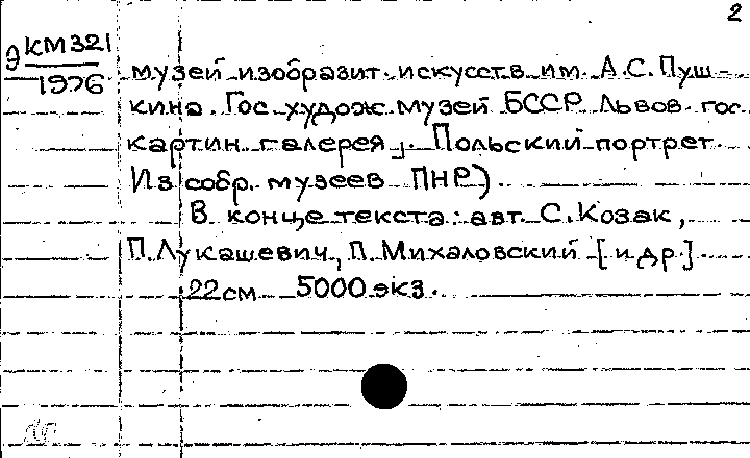 2
Э КМ321
1976
музей изобразит. искусств им. А.С. Пуш-
кина. Гос. худож. музей БССР. Львов. гос.
картин. галерея]. Польский портрет.
Из собр. музеев ПНР)
В конце текста: авт. С. Козак,
П. Лукашевич, П. Михаловский [и др.]
22 см 5000 экз.